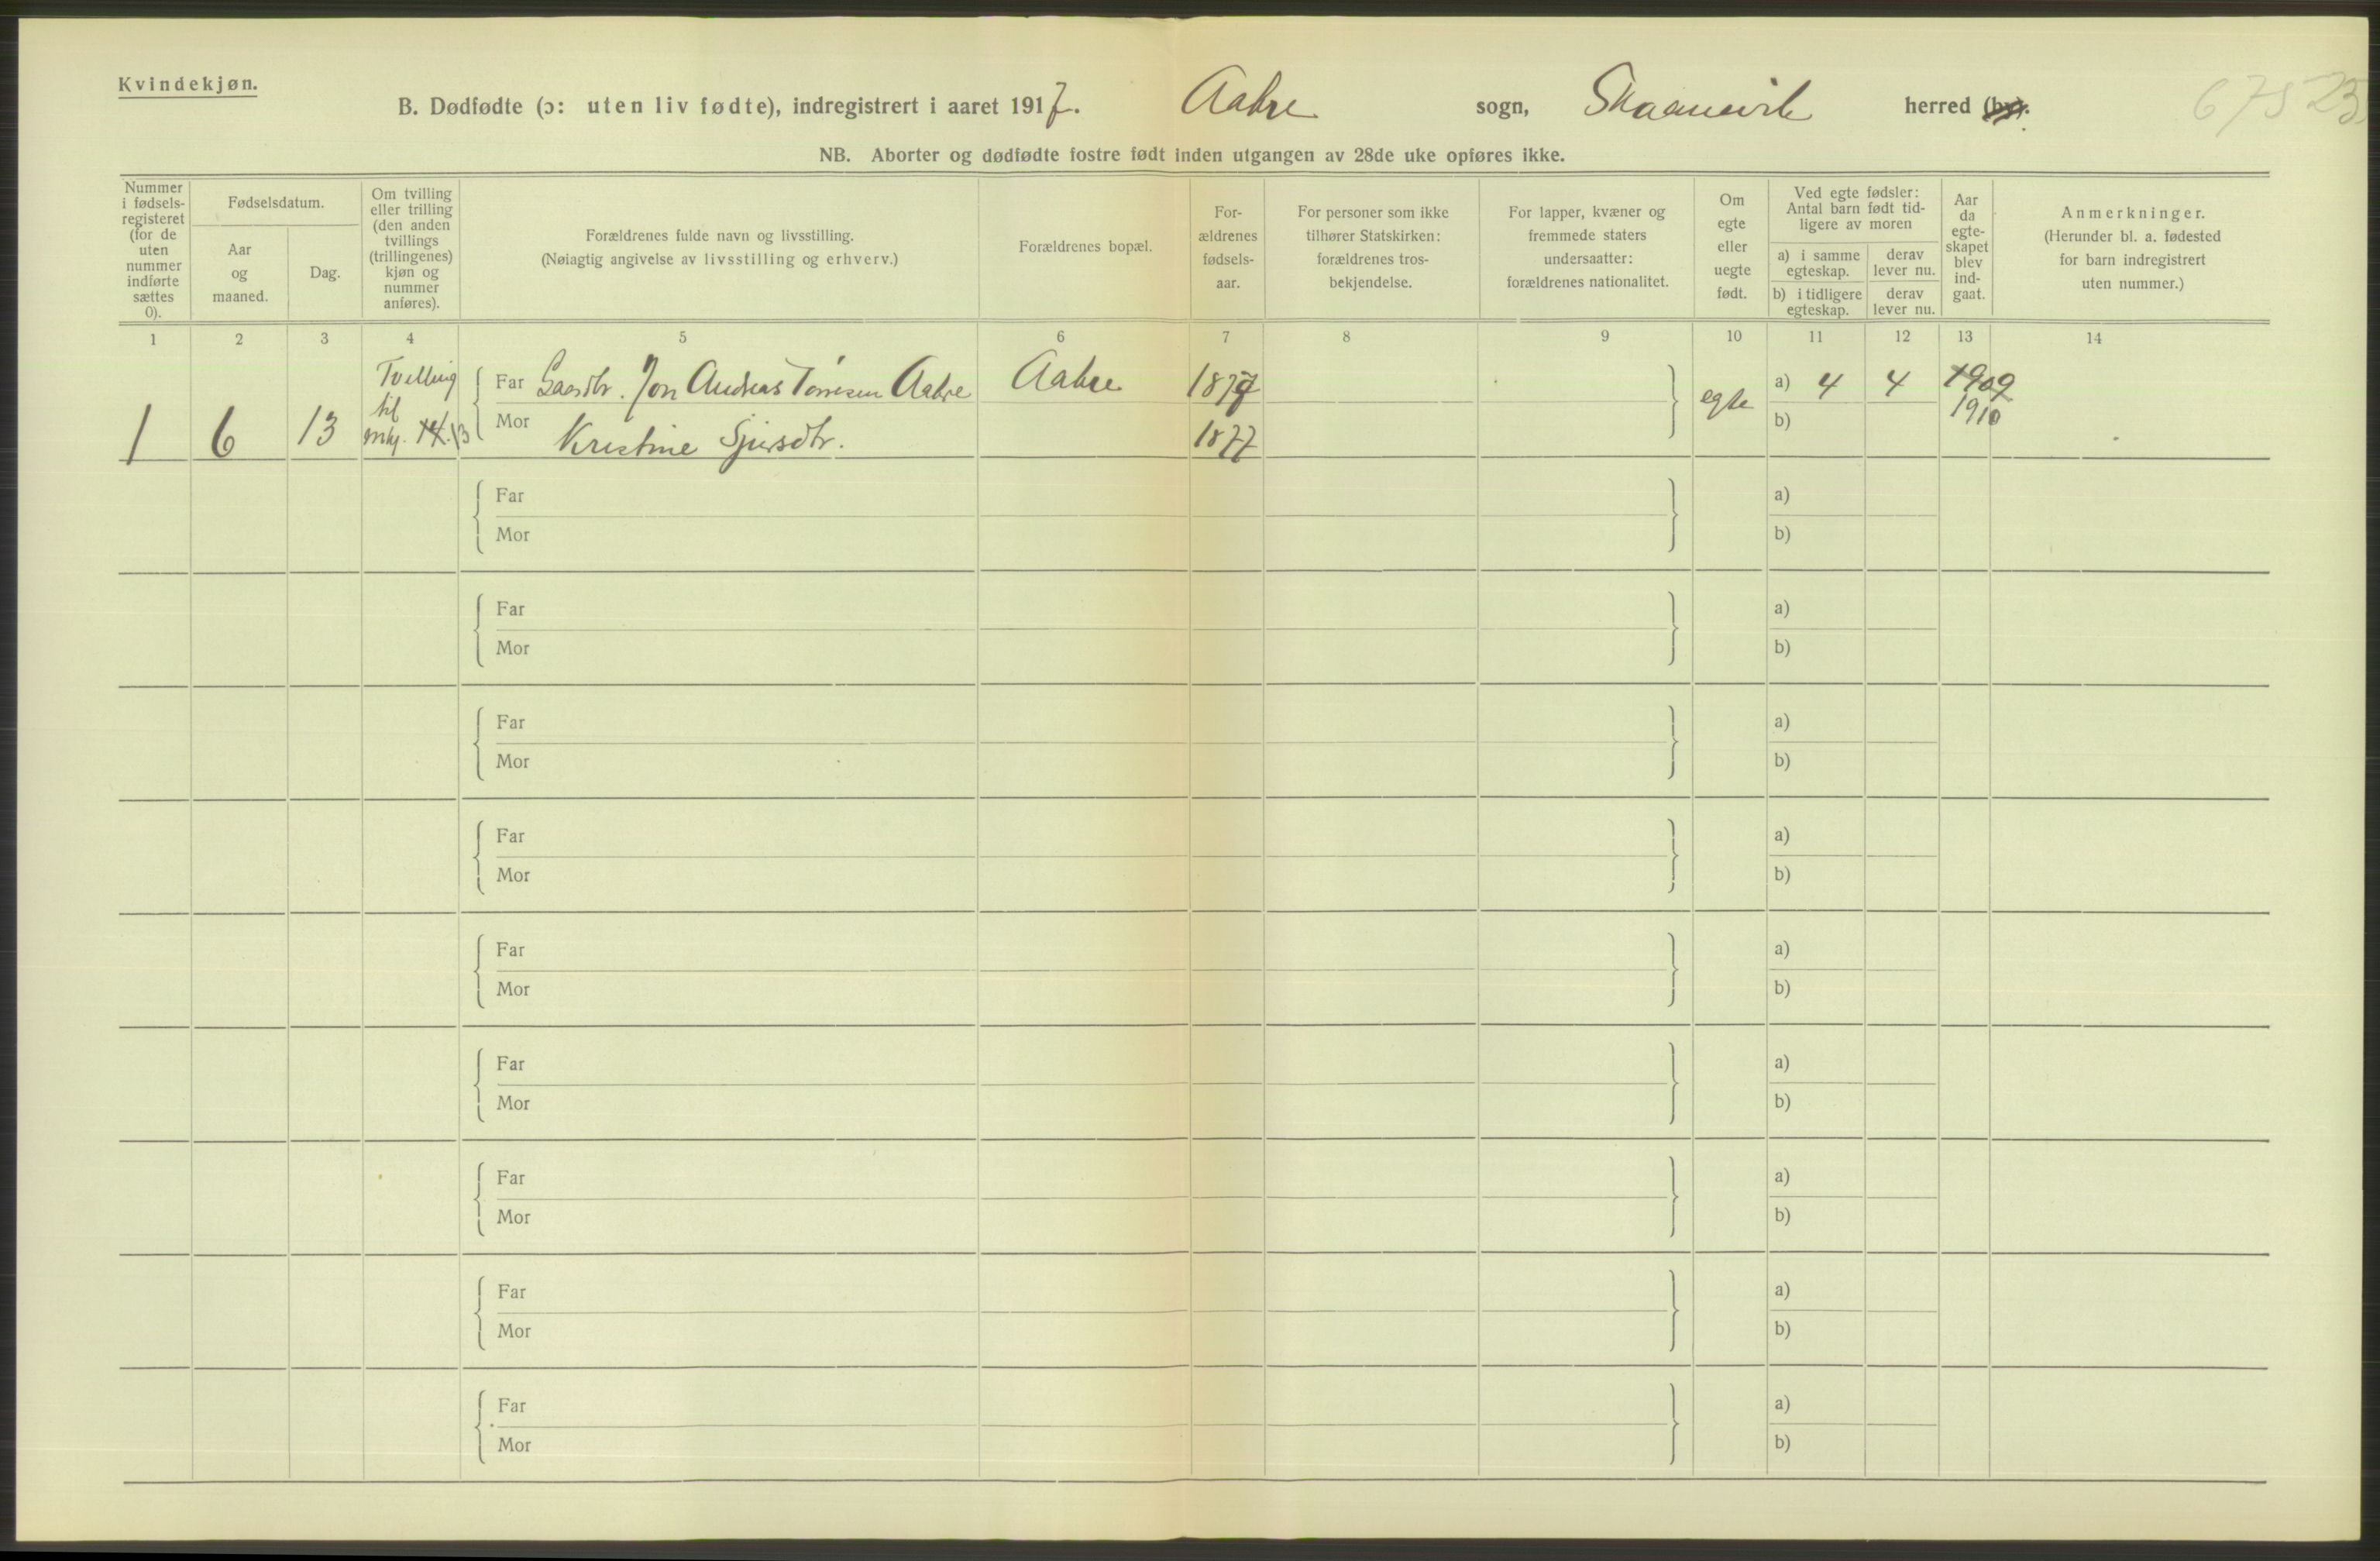 Kvindekjøn.
B. Dødfødte (ɔ: uten liv fødte), indregistrert i aaret 1917. Aakre sogn, Skaanevik herred (by).
67523
NB. Aborter og dødfødte fostre født inden utgangen av 28de uke opføres ikke.
Nummer
i fødsels-
registeret
(for de
uten
nummer
indførte
sættes
0).
Fødselsdatum.
Aar
og
maaned.
Dag.
Om tvilling
eller trilling
(den anden
tvillings
(trillingenes)
kjøn og
nummer
anføres).
Forældrenes fulde navn og livsstilling.
(Nøiagtig angivelse av livsstilling og erhverv.)
Forældrenes bopæl.
For-
ældrenes
fødsels-
aar.
For personer som ikke
tilhører Statskirken:
forældrenes tros-
bekjendelse.
For lapper, kvæner og
fremmede staters
undersaatter:
forældrenes nationalitet.
Om
egte
eller
uegte
født.
Ved egte fødsler:
Antal barn født tid-
ligere av moren
a) i samme
egteskap.
derav
lever nu.
b) i tidligere
egteskap.
derav
lever nu.
Aar
da
egte-
skapet
blev
ind-
gaat.
Anmerkninger.
(Herunder bl. a. fødested
for barn indregistrert
uten nummer.)
1 2 3 4 5 6 7 8 9 10 11 12 13 14
1
6
13
Tvilling
til
mkj. 14. 13
Far Gaardbr. Jon Andreas Tørresen Aakre
Mor Kristine Sjursdtr.
Aakre
1879
1877
egte
a) 4 4
b)
1909
1910
Far
Mor
a)
b)
Far
Mor
a)
b)
Far
Mor
a)
b)
Far
Mor
a)
b)
Far
Mor
a)
b)
Far
Mor
a)
b)
Far
Mor
a)
b)
Far
Mor
a)
b)
Far
Mor
a)
b)